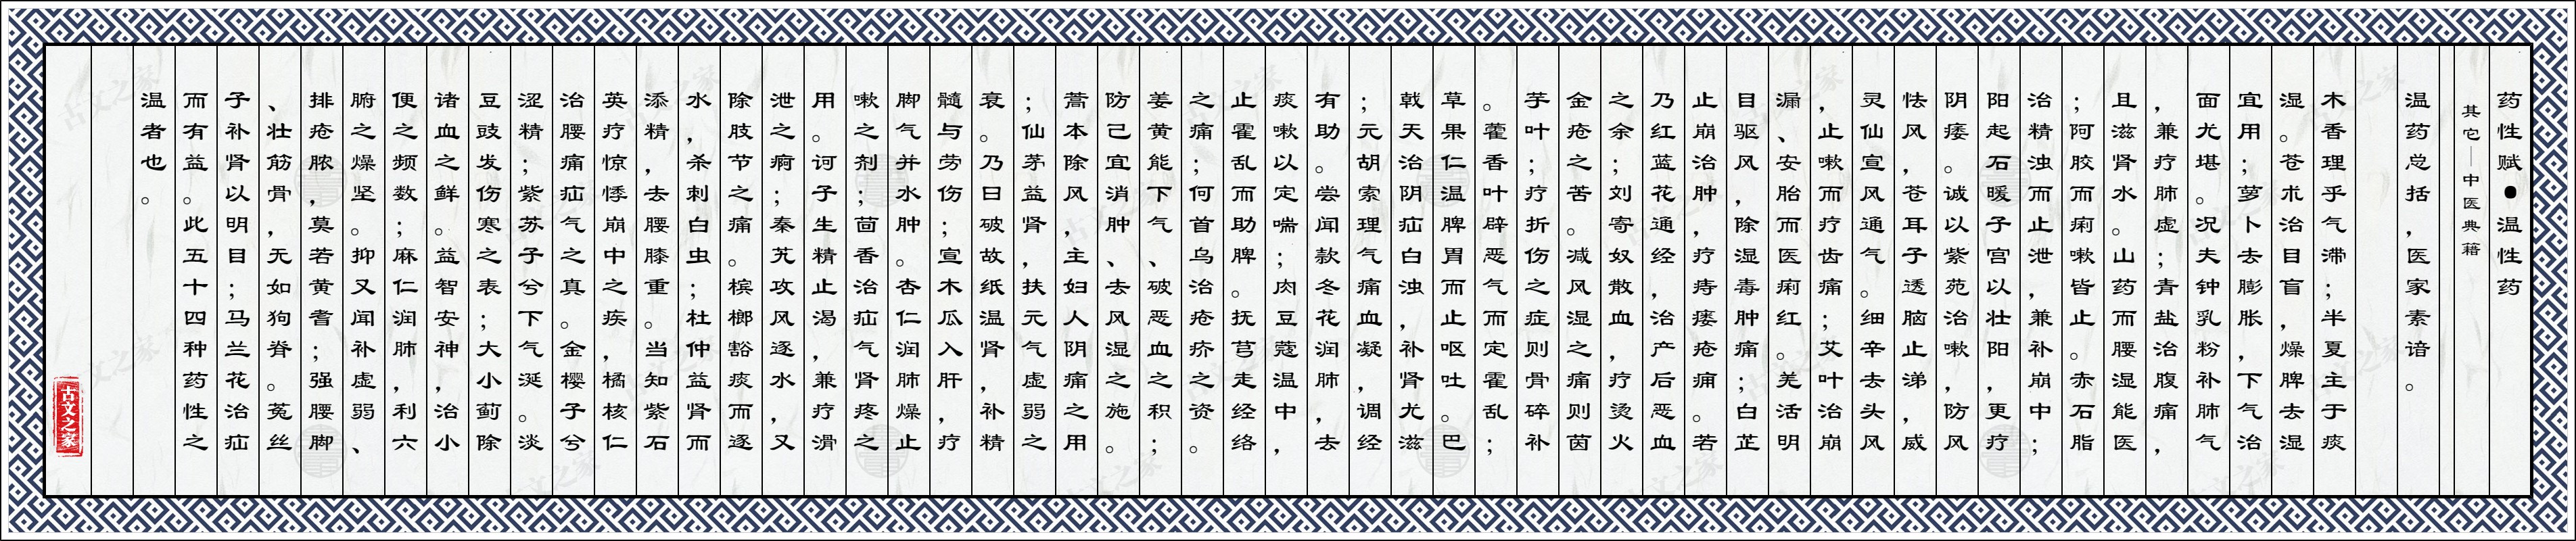 药性赋●温性药
其它—中医典籍
温药总括，医家素谙。
木香理乎气滞；半夏主于痰
湿。苍术治目盲，燥脾去湿
宜用；萝卜去膨胀，下气治
面尤堪。况夫钟乳粉补肺气
，兼疗肺虚；青盐治腹痛，
且滋肾水。山药而腰湿能医
；阿胶而痢嗽皆止。赤石脂
治精浊而止泄，兼补崩中；
阳起石暖子宫以壮阳，更疗
阴痿。诚以紫菀治嗽，防风
怯风，苍耳子透脑止涕，威
灵仙宣风通气。细辛去头风
，止嗽而疗齿痛；艾叶治崩
漏、安胎而医痢红。羌活明
目驱风，除湿毒肿痛；白芷
止崩治肿，疗痔瘘疮痈。若
乃红蓝花通经，治产后恶血
之余；刘寄奴散血，疗烫火
金疮之苦。减风湿之痛则茵
芋叶；疗折伤之症则骨碎补
。藿香叶辟恶气而定霍乱；
草果仁温脾胃而止呕吐。巴
戟天治阴疝白浊，补肾尤滋
；元胡索理气痛血凝，调经
有助。尝闻款冬花润肺，去
痰嗽以定喘；肉豆蔻温中，
止霍乱而助脾。抚芎走经络
之痛；何首乌治疮疥之资。
姜黄能下气、破恶血之积；
防己宜消肿、去风湿之施。
蒿本除风，主妇人阴痛之用
；仙茅益肾，扶元气虚弱之
衰。乃曰破故纸温肾，补精
髓与劳伤；宣木瓜入肝，疗
脚气并水肿。杏仁润肺燥止
嗽之剂；茴香治疝气肾疼之
用。诃子生精止渴，兼疗滑
泄之疴；秦艽攻风逐水，又
除肢节之痛。槟榔豁痰而逐
水，杀刺白虫；杜仲益肾而
添精，去腰膝重。当知紫石
英疗惊悸崩中之疾，橘核仁
治腰痛疝气之真。金樱子兮
涩精；紫苏子兮下气涎。淡
豆豉发伤寒之表；大小蓟除
诸血之鲜。益智安神，治小
便之频数；麻仁润肺，利六
腑之燥坚。抑又闻补虚弱、
排疮脓，莫若黄耆；强腰脚
、壮筋骨，无如狗脊。菟丝
子补肾以明目；马兰花治疝
而有益。此五十四种药性之
温者也。
古文之家